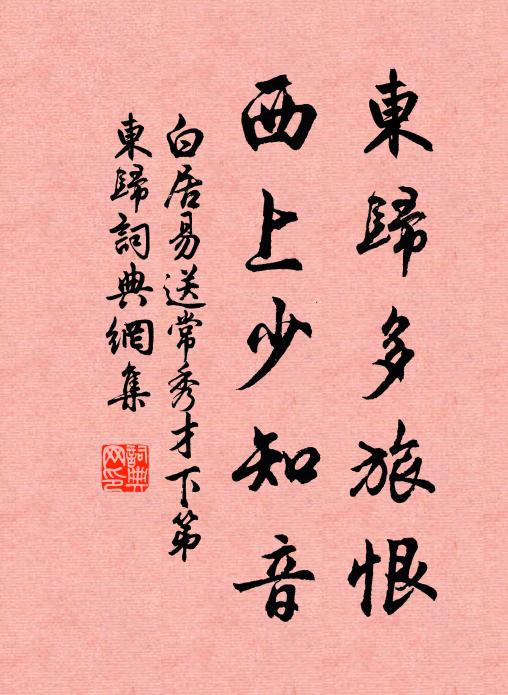 東歸多旅恨
西上少知音
白居易送常秀才下第
東歸詞典網集
詞典
网印